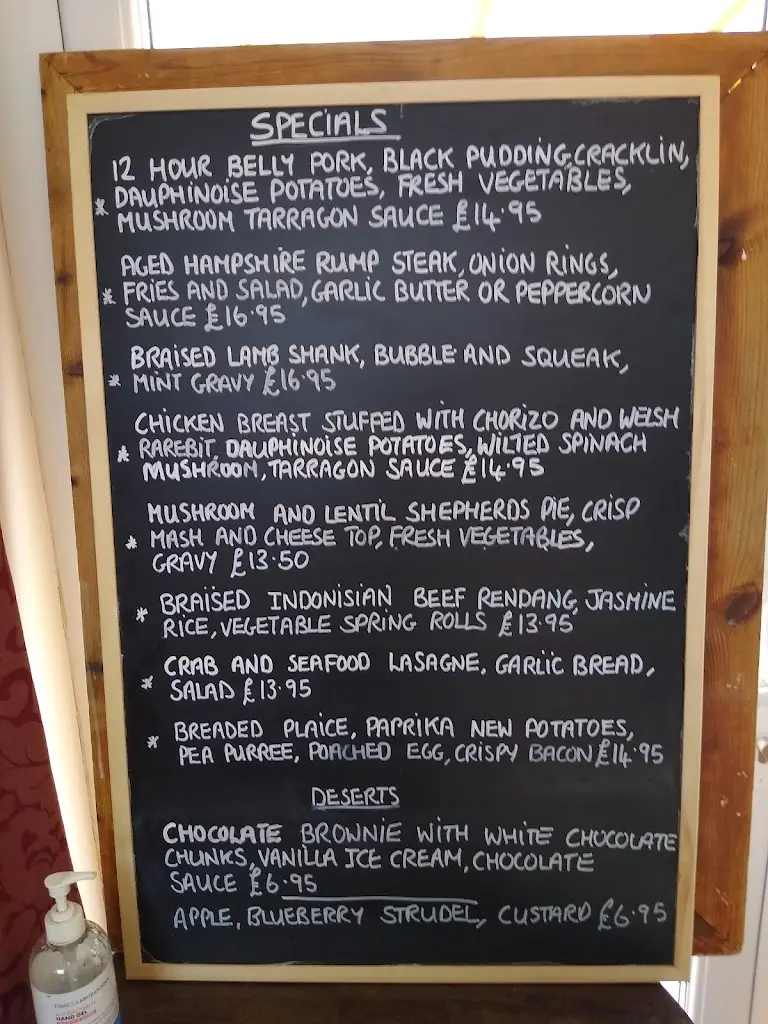 SPECIALS
12 HOUR BELLY PORK, BLACK PUDDING, CRACKLIN,
* DAUPHINOISE POTATOES, FRESH VEGETABLES,
MUSHROOM TARRAGON SAUCE £14.95
AGED HAMPSHIRE RUMP STEAK, ONION RINGS,
* FRIES AND SALAD, GARLIC BUTTER OR PEPPERCORN
SAUCE £16.95
BRAISED LAMB SHANK, BUBBLE AND SQUEAK,
* MINT GRAVY £16.95
CHICKEN BREAST STUFFED WITH CHORIZO AND WELSH
* RAREBIT, DAUPHINOISE POTATOES, WILTED SPINACH
MUSHROOM, TARRAGON SAUCE £14.95
MUSHROOM AND LENTIL SHEPHERDS PIE, CRISP
* MASH AND CHEESE TOP, FRESH VEGETABLES,
GRAVY £13.50
* BRAISED INDONISIAN BEEF RENDANG, JASMINE
RICE, VEGETABLE SPRING ROLLS £13.95
CRAB AND SEAFOOD LASAGNE, GARLIC BREAD,
* SALAD £13.95
* BREADED PLAICE, PAPRIKA NEW POTATOES,
PEA PURREE, POACHED EGG, CRISPY BACON £14.95
DESERTS
CHOCOLATE BROWNIE WITH WHITE CHOCOLATE
CHUNKS, VANILLA ICE CREAM, CHOCOLATE
SAUCE £6.95
APPLE, BLUEBERRY STRUDEL, CUSTARD £6.95
HAND GEL